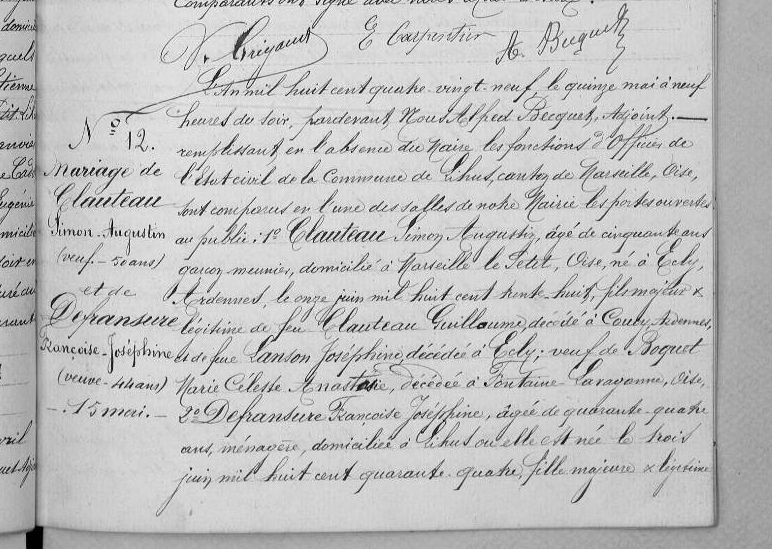 Comparants ont signé avec nous après lecture.
V. Grigault E Carpentier A. Becquet
N° 12.
Mariage de
Clauteau
Simon-Augustin
(veuf - 50 ans)
et de
Defransure
Françoise-Joséphine
(veuve - 44 ans)
- 15 mai. -
L'An mil huit cent quatre-vingt-neuf, le quinze mai à neuf
heures du soir, pardevant Nous Alfred Becquet, Adjoint,
remplissant en l'absence du Maire les fonctions d'Officier de
l'Etat civil de la Commune de Lihus, canton de Marseille, Oise,
sont comparus en l'une des salles de notre Mairie les portes ouvertes
au public: 1° Clauteau Simon Augustin, âgé de cinquante ans
garçon meunier, domicilié à Marseille le Petit, Oise, né à Ecly,
Ardennes, le onze juin mil huit cent trente huit, fils majeur &
légitime de feu Clauteau Guillaume, décédé à Coucy, Ardennes,
et de feue Lanson Joséphine, décédée à Ecly; veuf de Boquet
Marie Céleste Anastasie, décédée à Fontaine Lavaganne, Oise,
2° Defransure Françoise Joséphine, âgée de quarante-quatre
ans, ménagère, domiciliée à Lihus où elle est née le trois
juin mil huit cent quarante-quatre, fille majeure & légitime